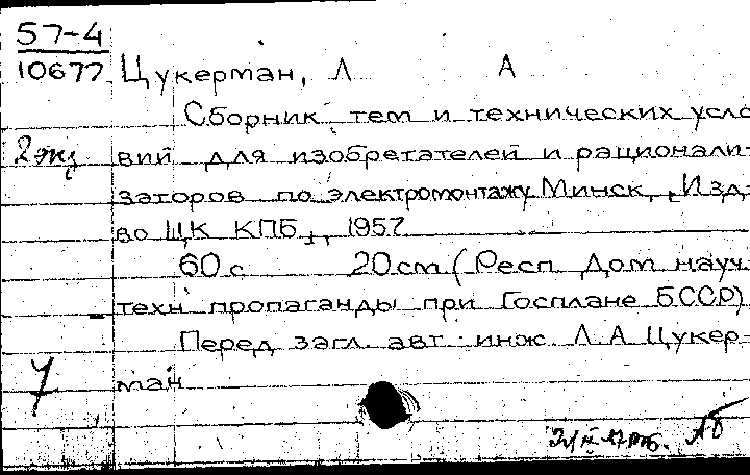 57-4
10677 Цукерман, Л А
Сборник тем и технических усло
2 экз. вий для изобретателей и рационали-
заторов по электромонтажу Минск, Изд-
во ЦК КПБ, 1957
60 с 20 см (Респ Дом науч
техн пропаганды при Госплане БССР)
Перед загл. авт. инж. Л А Цукер-
7 ман